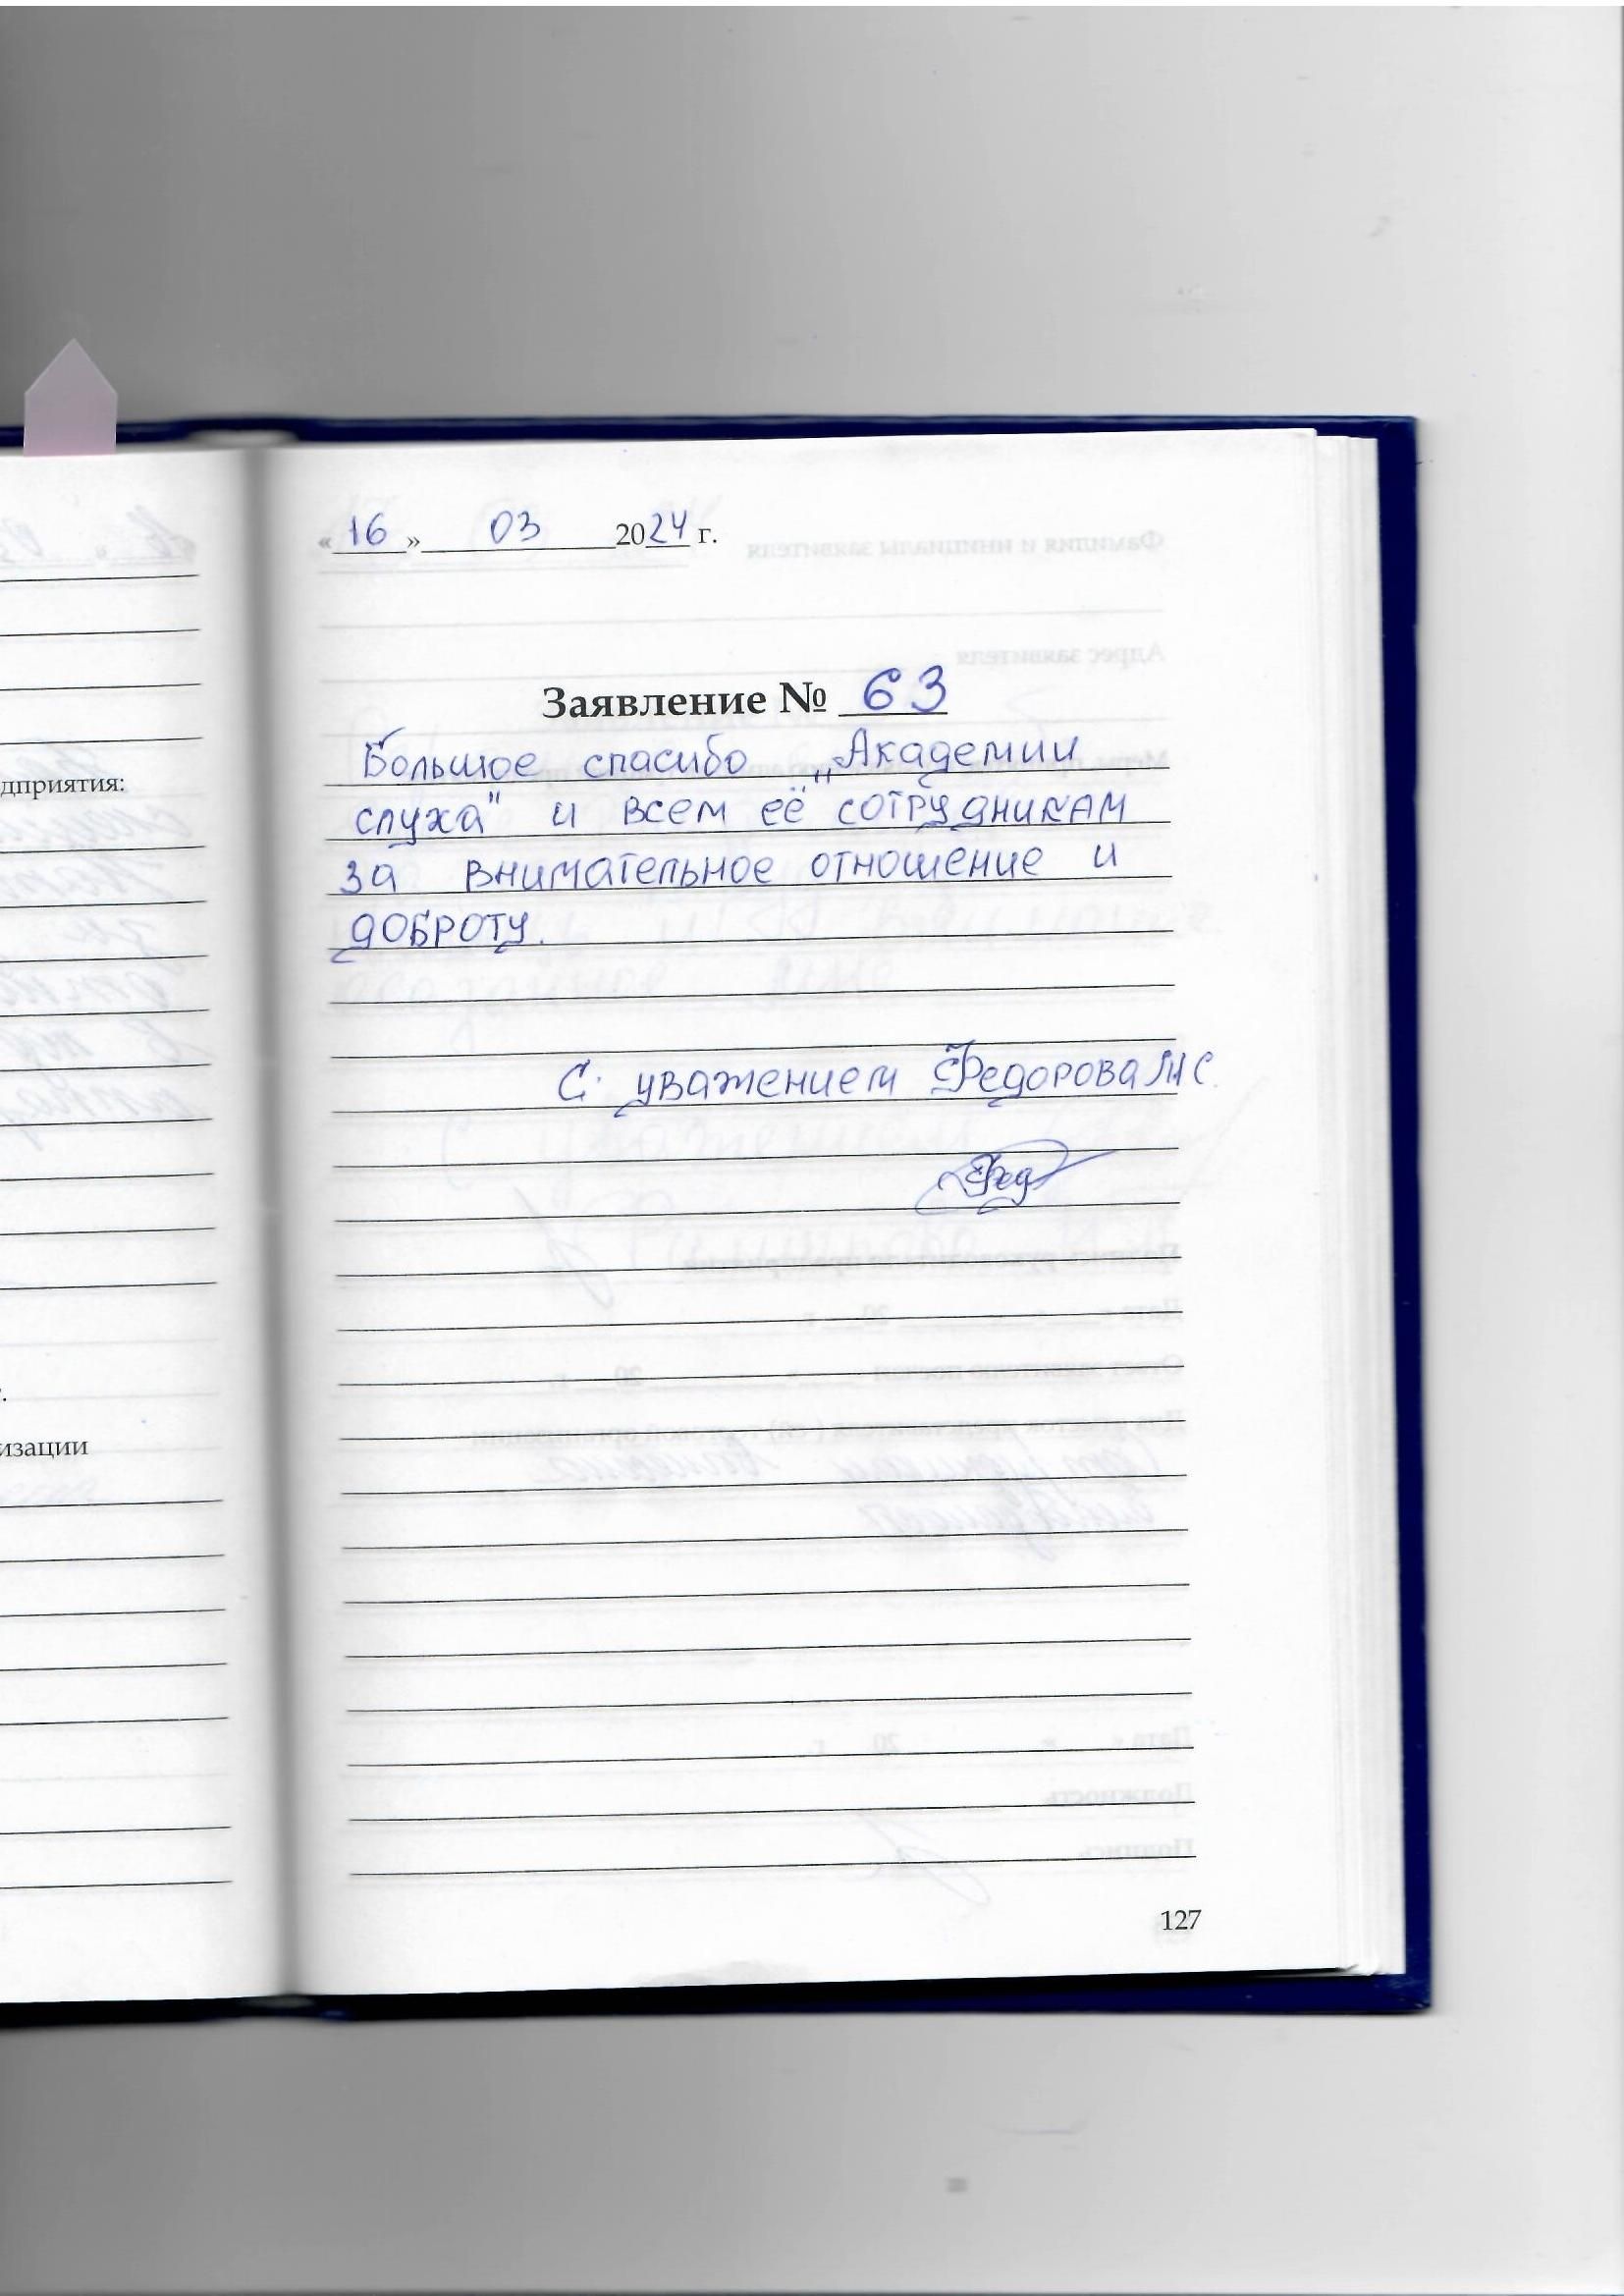 «16» 03 2024 г.
Заявление № 63
Большое спасибо „Академии
слуха" и всем её сотрудникам
за внимательное отношение и
доброту.
С уважением Федорова М С.
Фед
дприятия:
г.
изации
127